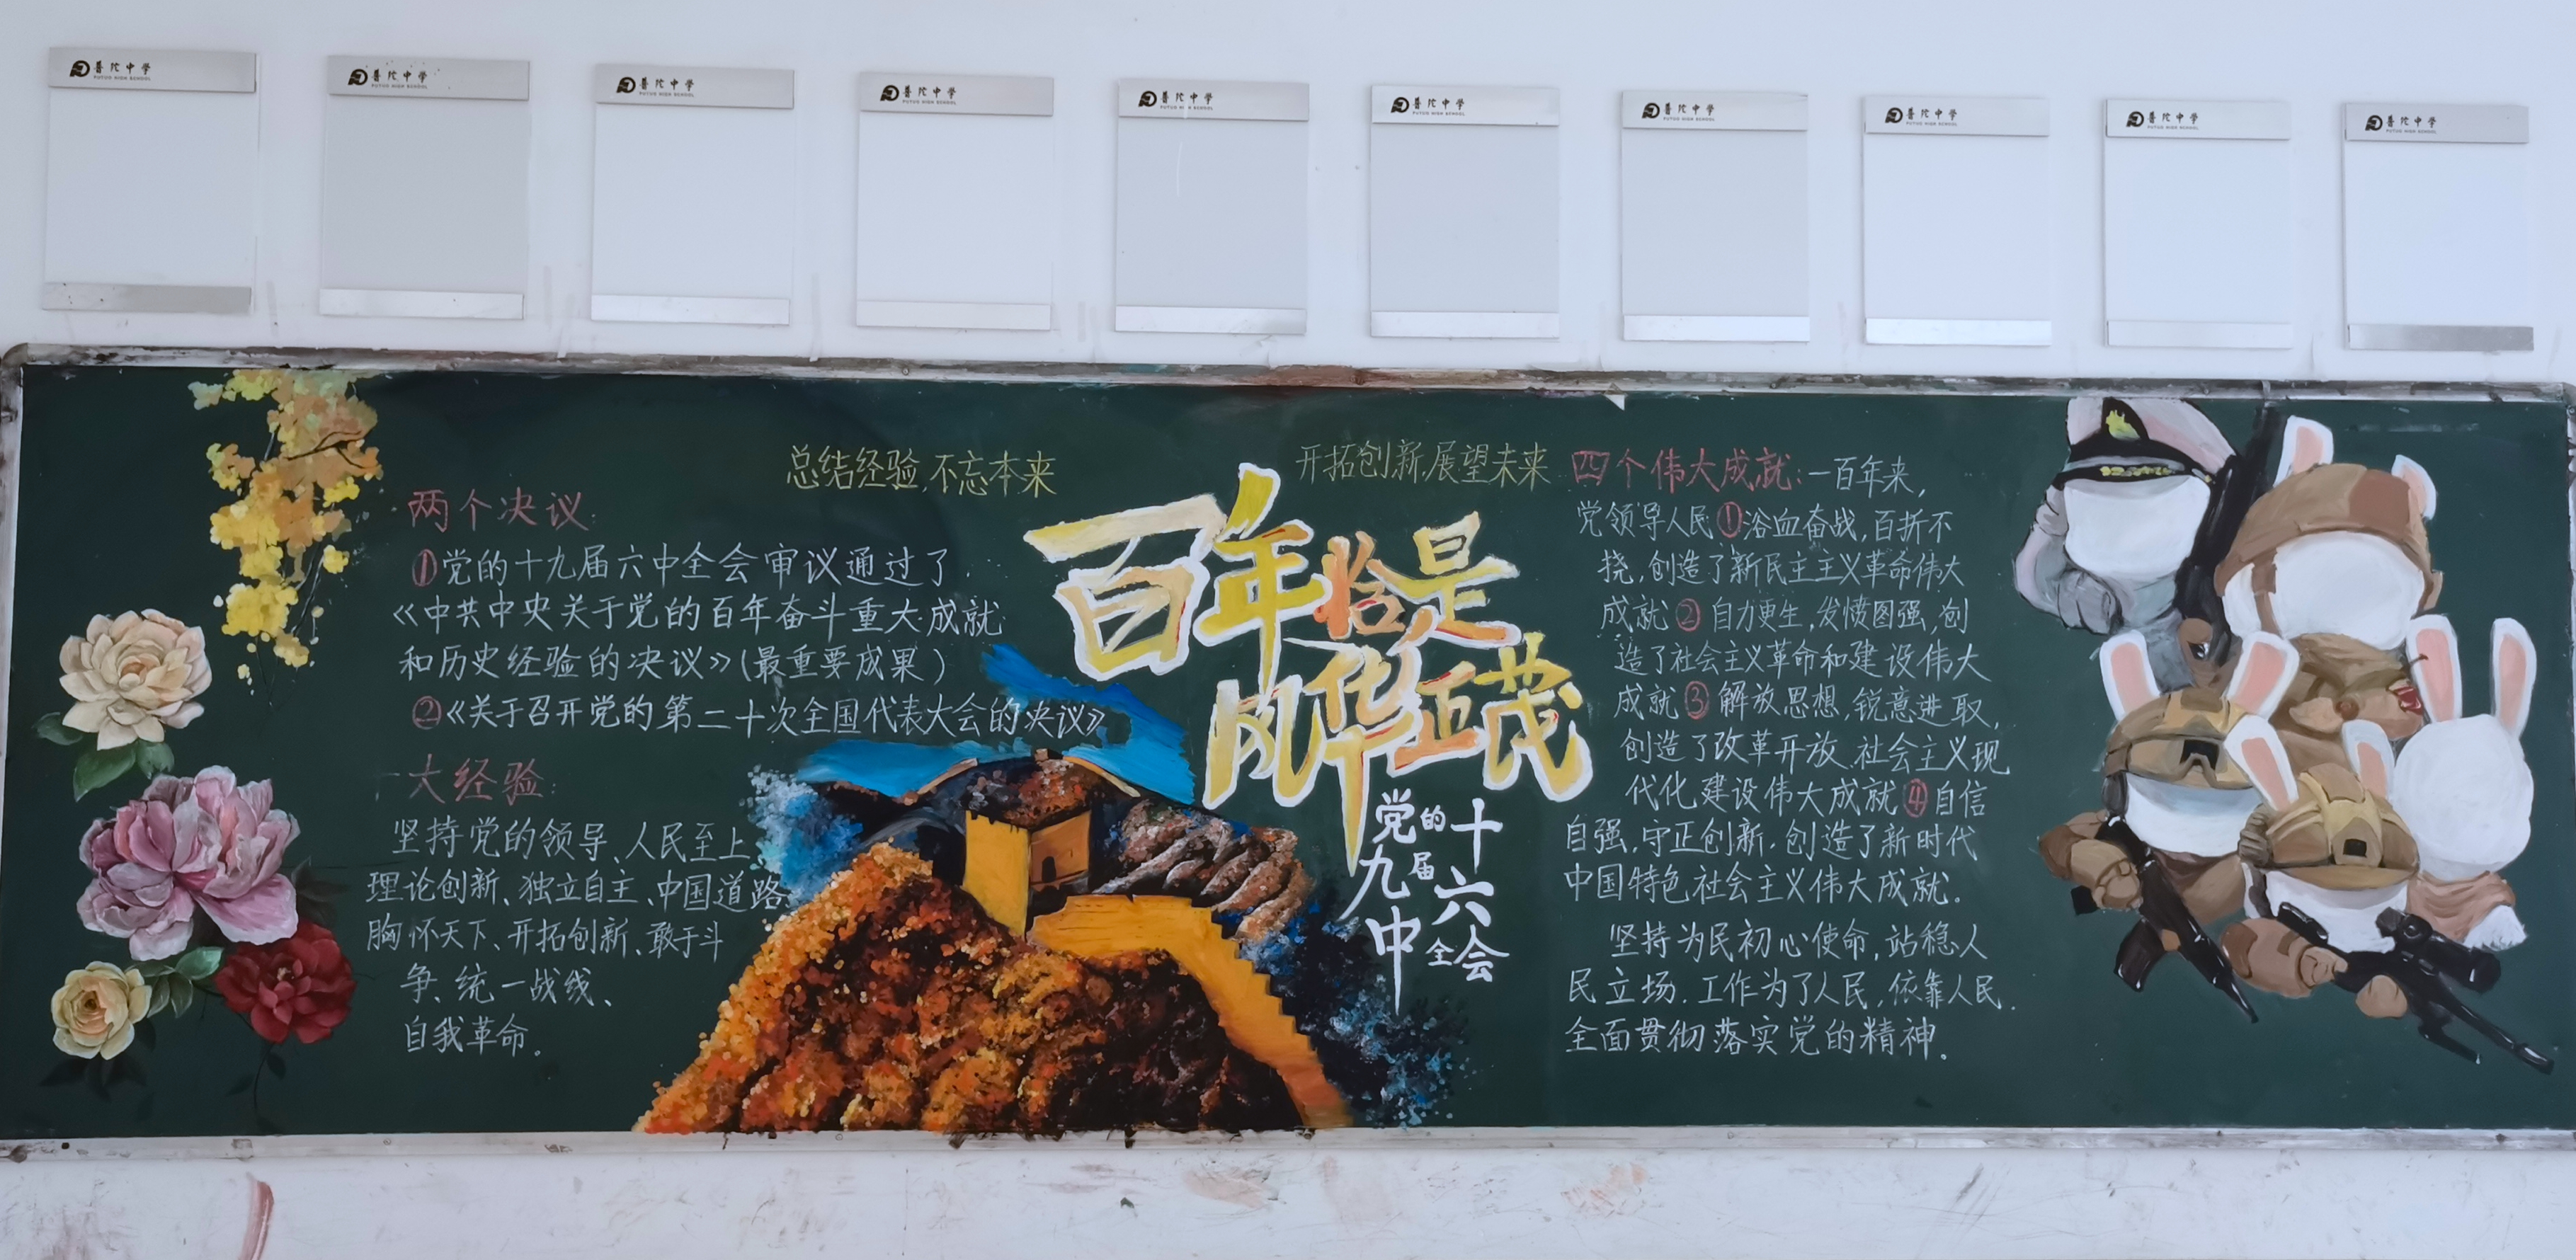 普陀中学
PUTUO HIGH SCHOOL
普陀中学
PUTUO HIGH SCHOOL
普陀中学
PUTUO HIGH SCHOOL
普陀中学
PUTUO HIGH SCHOOL
普陀中学
PUTUO HIGH SCHOOL
普陀中学
PUTUO HIGH SCHOOL
普陀中学
PUTUO HIGH SCHOOL
普陀中学
PUTUO HIGH SCHOOL
普陀中学
PUTUO HIGH SCHOOL
普陀中学
PUTUO HIGH SCHOOL
总结经验,不忘本来
开拓创新,展望未来
两个决议:
①党的十九届六中全会审议通过了
《中共中央关于党的百年奋斗重大成就
和历史经验的决议》(最重要成果)
②《关于召开党的第二十次全国代表大会的决议》
一大经验:
坚持党的领导、人民至上、
理论创新、独立自主、中国道路、
胸怀天下、开拓创新、敢于斗
争、统一战线、
自我革命。
百年恰是
风华正茂
党的十
九届六
中全会
四个伟大成就:一百年来,
党领导人民①浴血奋战,百折不
挠,创造了新民主主义革命伟大
成就②自力更生,发愤图强,创
造了社会主义革命和建设伟大
成就③解放思想,锐意进取,
创造了改革开放.社会主义现
代化建设伟大成就④自信
自强,守正创新.创造了新时代
中国特色社会主义伟大成就.
坚持为民初心使命,站稳人
民立场.工作为了人民,依靠人民.
全面贯彻落实党的精神.